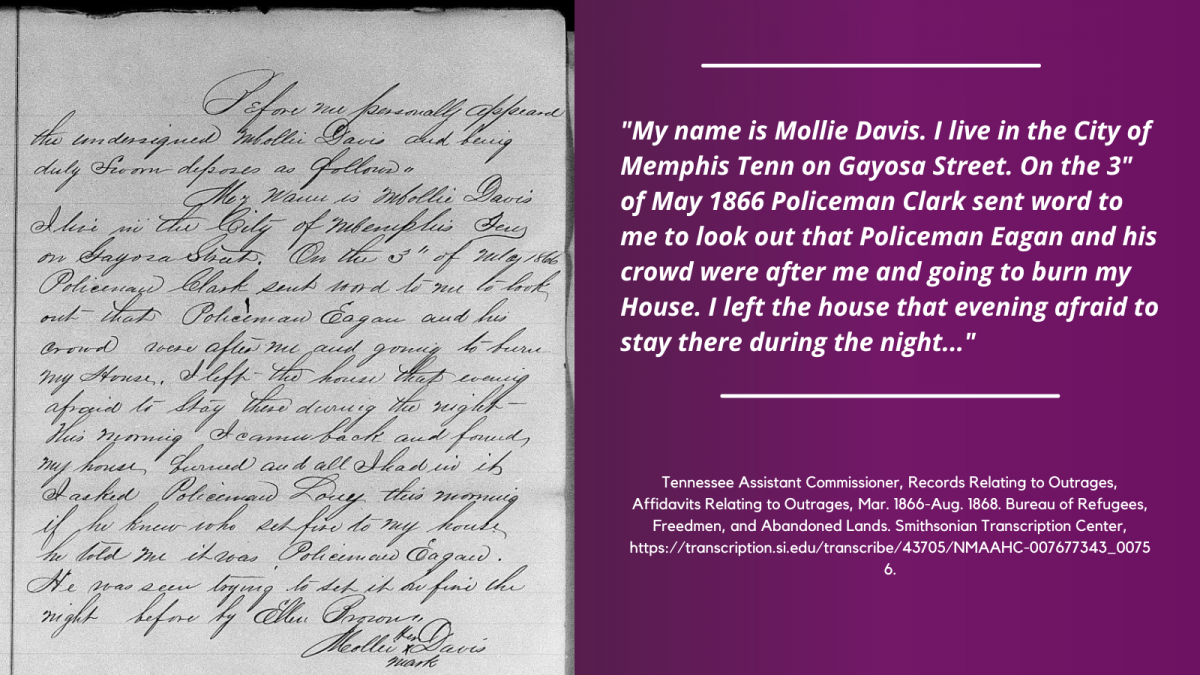 Before me personally appeared
the undersigned Mollie Davis and being
duly Sworn deposes as follows"
My Name is Mollie Davis
I live in the City of Memphis Ten
on Gayosa Street. On the 3" of May 1866
Policeman Clark sent word to me to look
out that Policeman Eagan and his
crowd were after me and going to burn
my House. I left the house that evening
afraid to Stay there during the night—
This morning I came back and found
my house burned and all I had in it
I asked Policeman this morning
if he knew who set fire to my house
he told me it was Policeman Eagan.
He was seen trying to set it on fire the
night before by Ellen Brown.
her
Mollie x Davis
mark
"My name is Mollie Davis. I live in the City of
Memphis Tenn on Gayosa Street. On the 3"
of May 1866 Policeman Clark sent word to
me to look out that Policeman Eagan and his
crowd were after me and going to burn my
House. I left the house that evening afraid to
stay there during the night..."
Tennessee Assistant Commissioner, Records Relating to Outrages,
Affidavits Relating to Outrages, Mar. 1866-Aug. 1868. Bureau of Refugees,
Freedmen, and Abandoned Lands. Smithsonian Transcription Center,
https://transcription.si.edu/transcribe/43705/NMAAHC-007677343_0075
6.